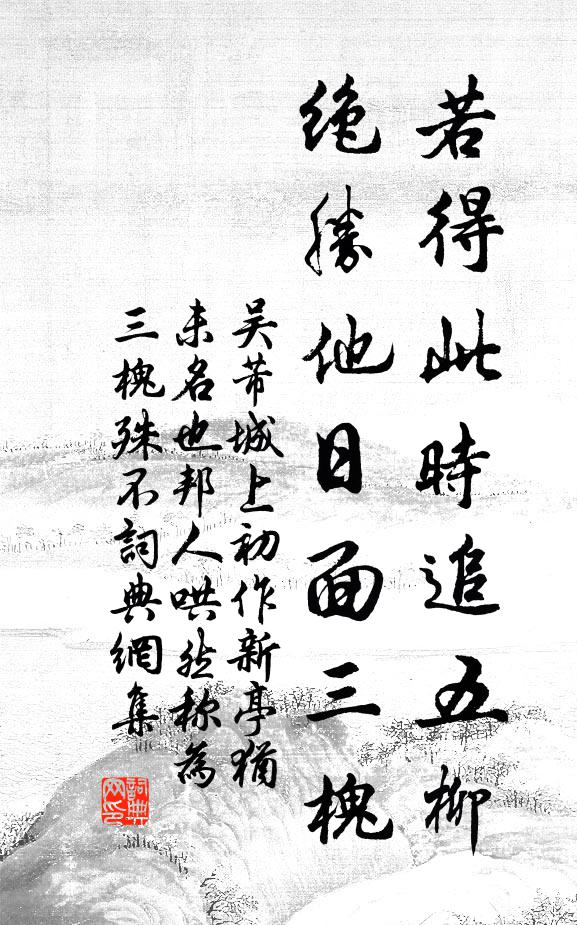 若得此時追五柳
絶勝他日面三槐
吴芾城上初作新亭猶
未名也邦人哄然称為
三槐殊不詞典網集
詞典